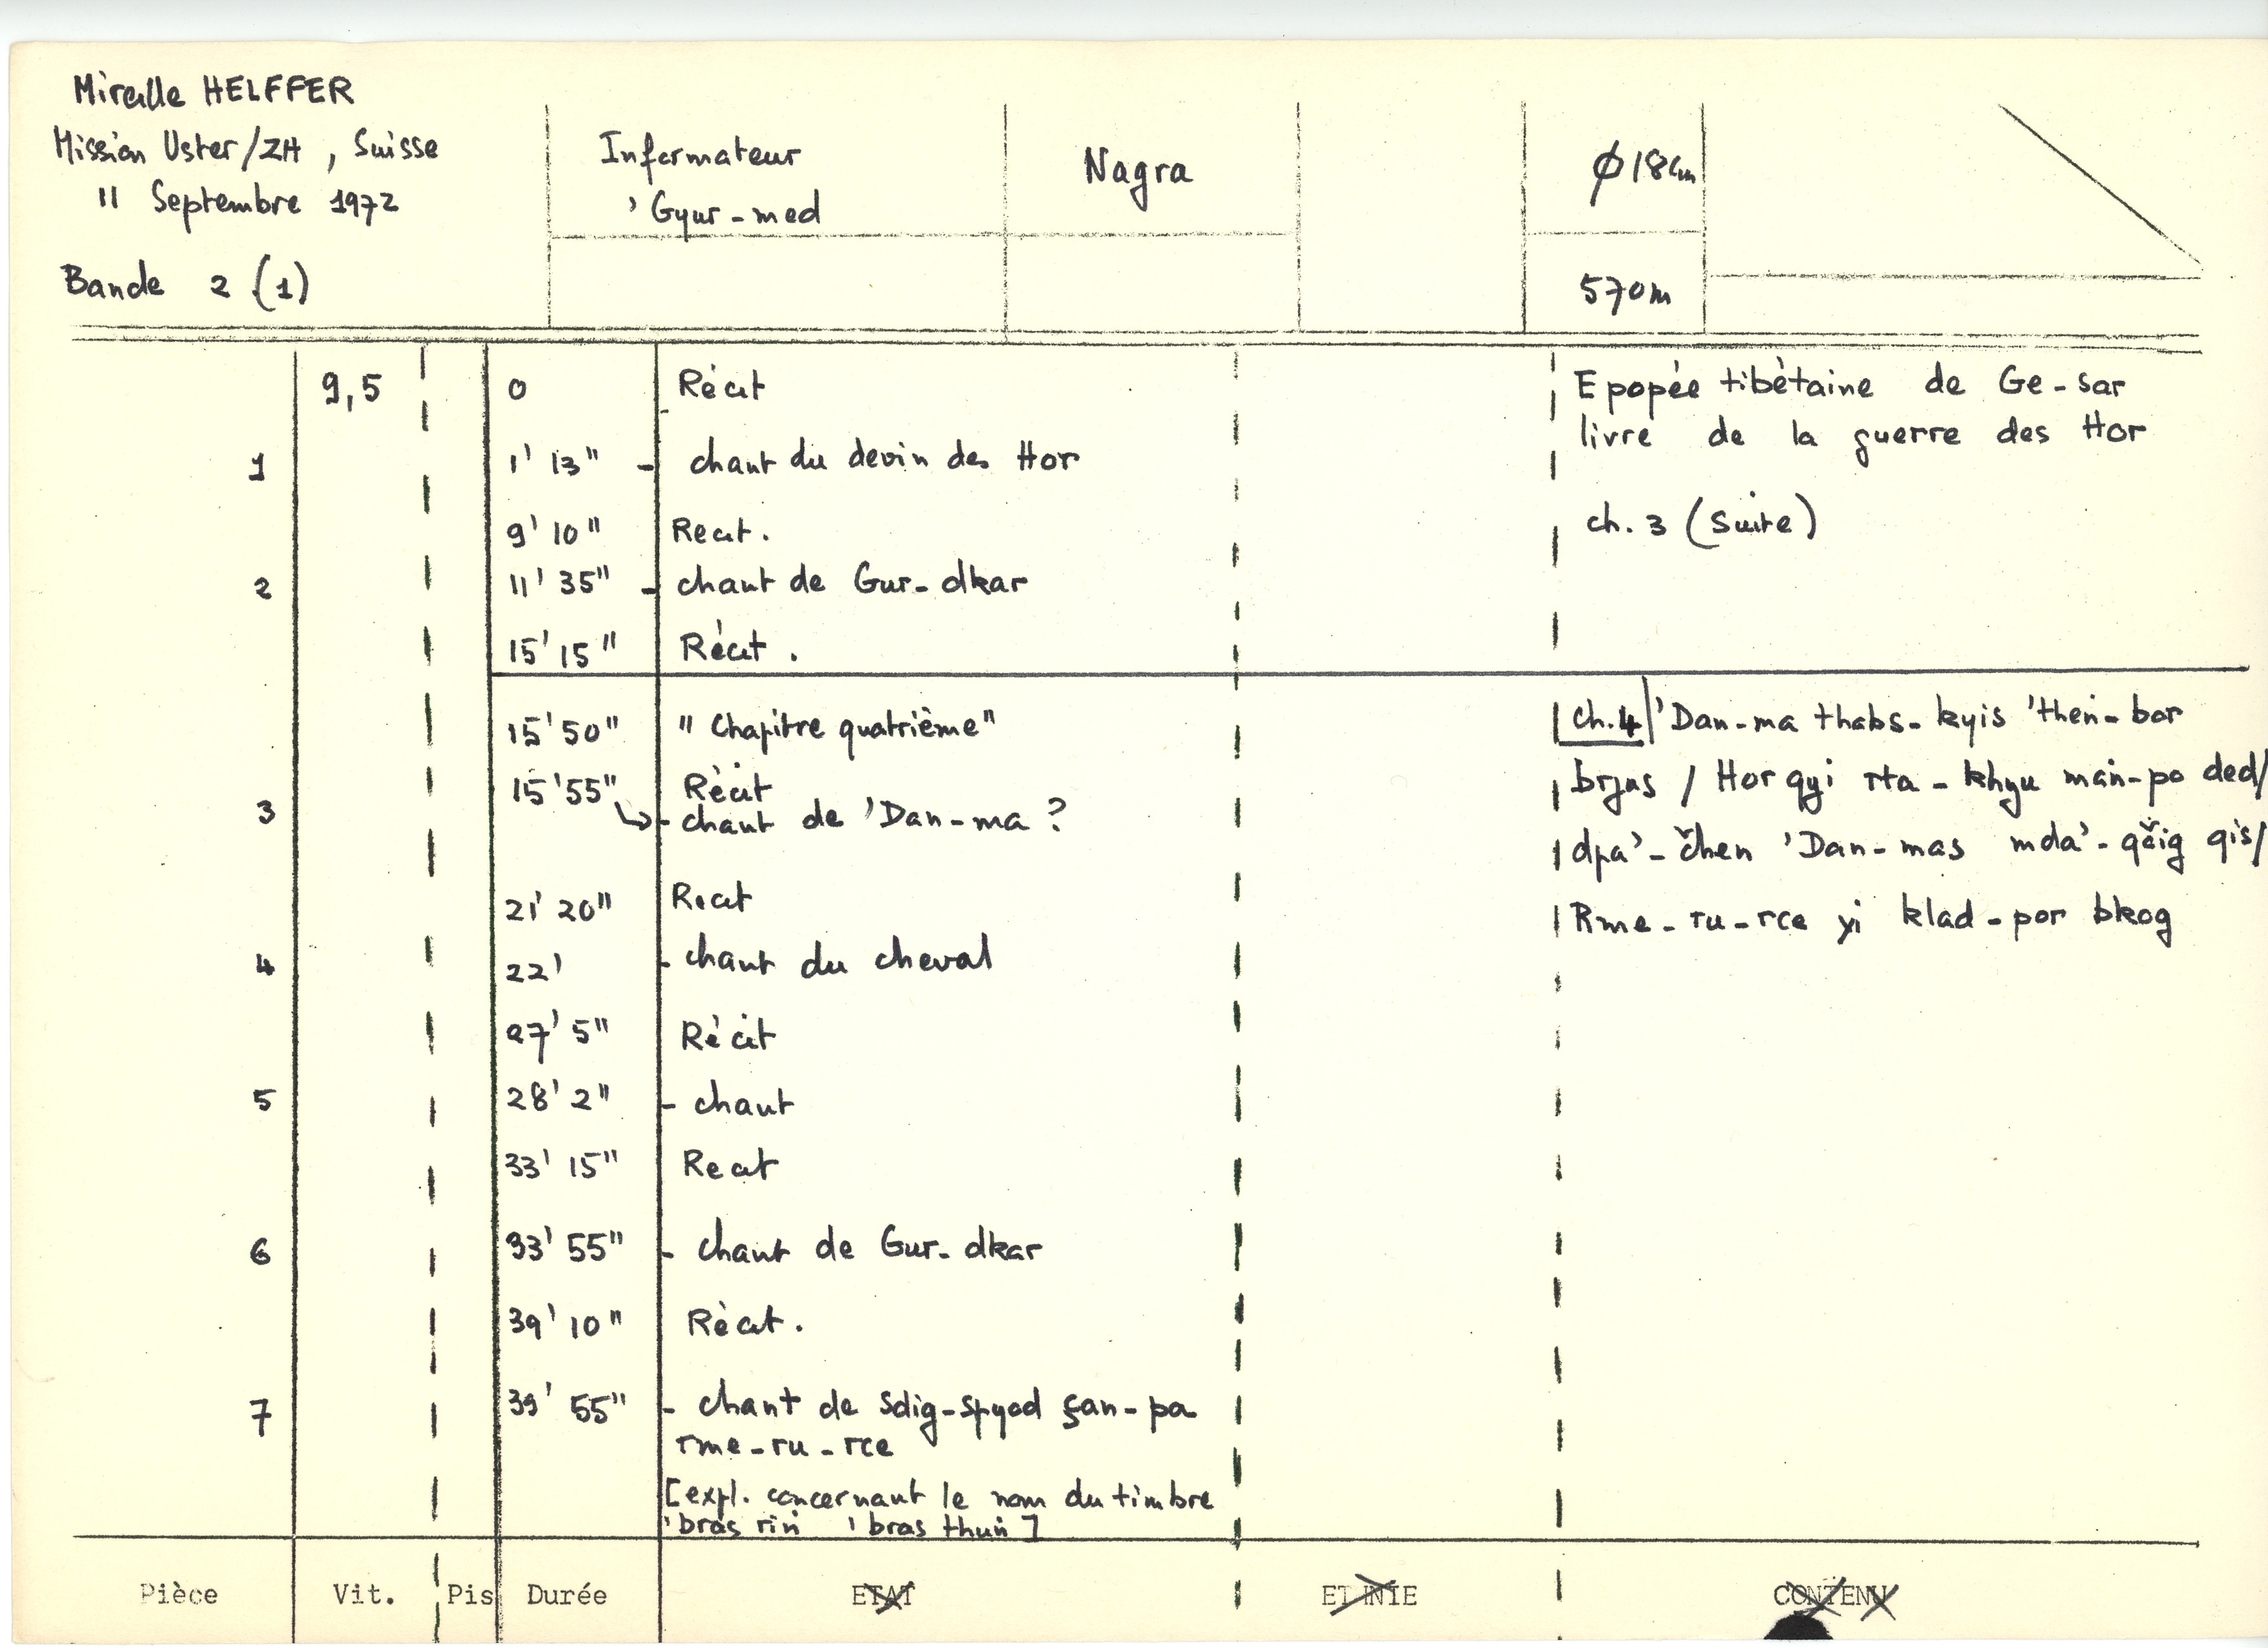 Mireille HELFFER
Mission Uster/ZH, Suisse
11 Septembre 1972
Bande 2 (1)
Informateur
'Gyur-med
Nagra
ϕ 18cm
570m
9,5 0 Récit
1 1' 13" - chant du devin des Hor
9' 10" Recit.
2 11' 35" - chant de Gur-dkar
15' 15" Récit.
Epopée tibétaine de Ge-sar
livre de la guerre des Hor
ch. 3 (suite)
15' 50" "Chapitre quatrième"
15' 55" Récit
3 - chant de 'Dan-ma ?
21' 20" Recit
4 22' - chant du cheval
27' 5" Récit
5 28' 2" - chant
33' 15" Recit
6 33' 55" - chant de Gur-dkar
39' 10" Récit.
7 39' 55" - chant de Sdig-spyod şan-pa
rme-ru-rce
[expl. concernant le nom du timbre
'bras riṅ 'bras thuṅ]
ch.4 'Dan-ma thabs-kyis 'then-bor
brjus / Hor gyi rta-khyu maṅ-po ded/
dpa'-čhen 'Dan-mas mda'-gčig gis/
Rme-ru-rce yi klad-por bkog
Pièce Vit. Pis Durée ETAT ETHNIE CONTENU